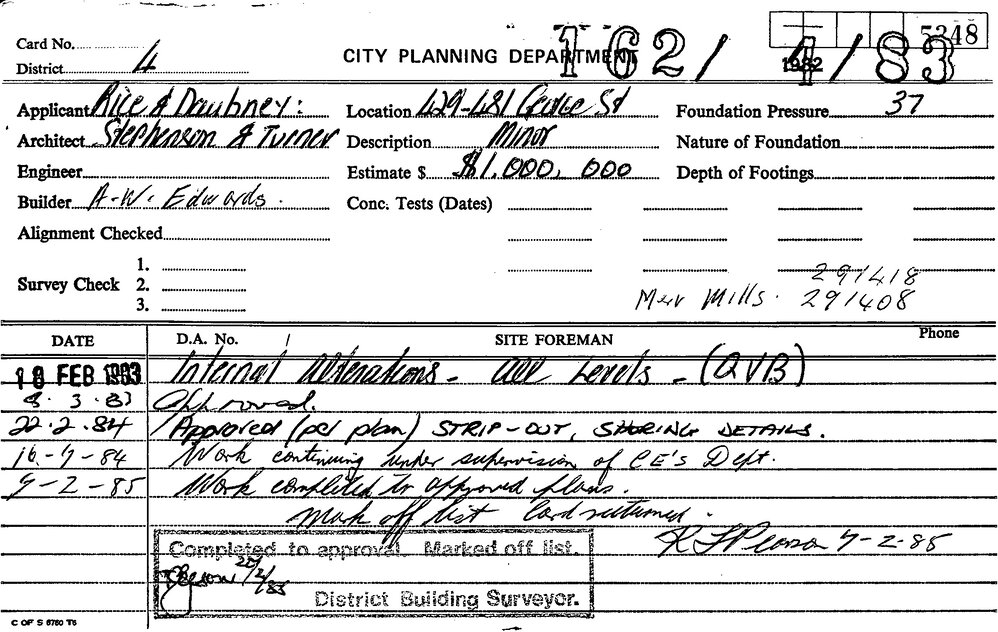 5348
Card No.
CITY PLANNING DEPARTMENT 162/4/83
1982
District 4
Applicant Rice & Daubney: Location 429-481 George St Foundation Pressure 37
Architect Stephenson & Turner Description Minor Nature of Foundation
Engineer Estimate $ $1,000,000 Depth of Footings
Builder A.W. Edwards. Conc. Tests (Dates)
Alignment Checked
1.
Survey Check 2.
3.
291418
Merv Mills. 291408
DATE D.A. No. SITE FOREMAN Phone
18 FEB 1983 Internal Alterations - All Levels - (QVB)
8.3.83 Approved.
22.2.84 Approved (per plan) STRIP-OUT, SHORING DETAILS.
16-7-84 Work continuing under supervision of CE's Dept.
7-2-85 Work completed to approved plans.
Mark off list Card returned.
K Pearson 7-2-85
Completed to approval. Marked off list.
District Building Surveyor.
C OF S 6760 T6